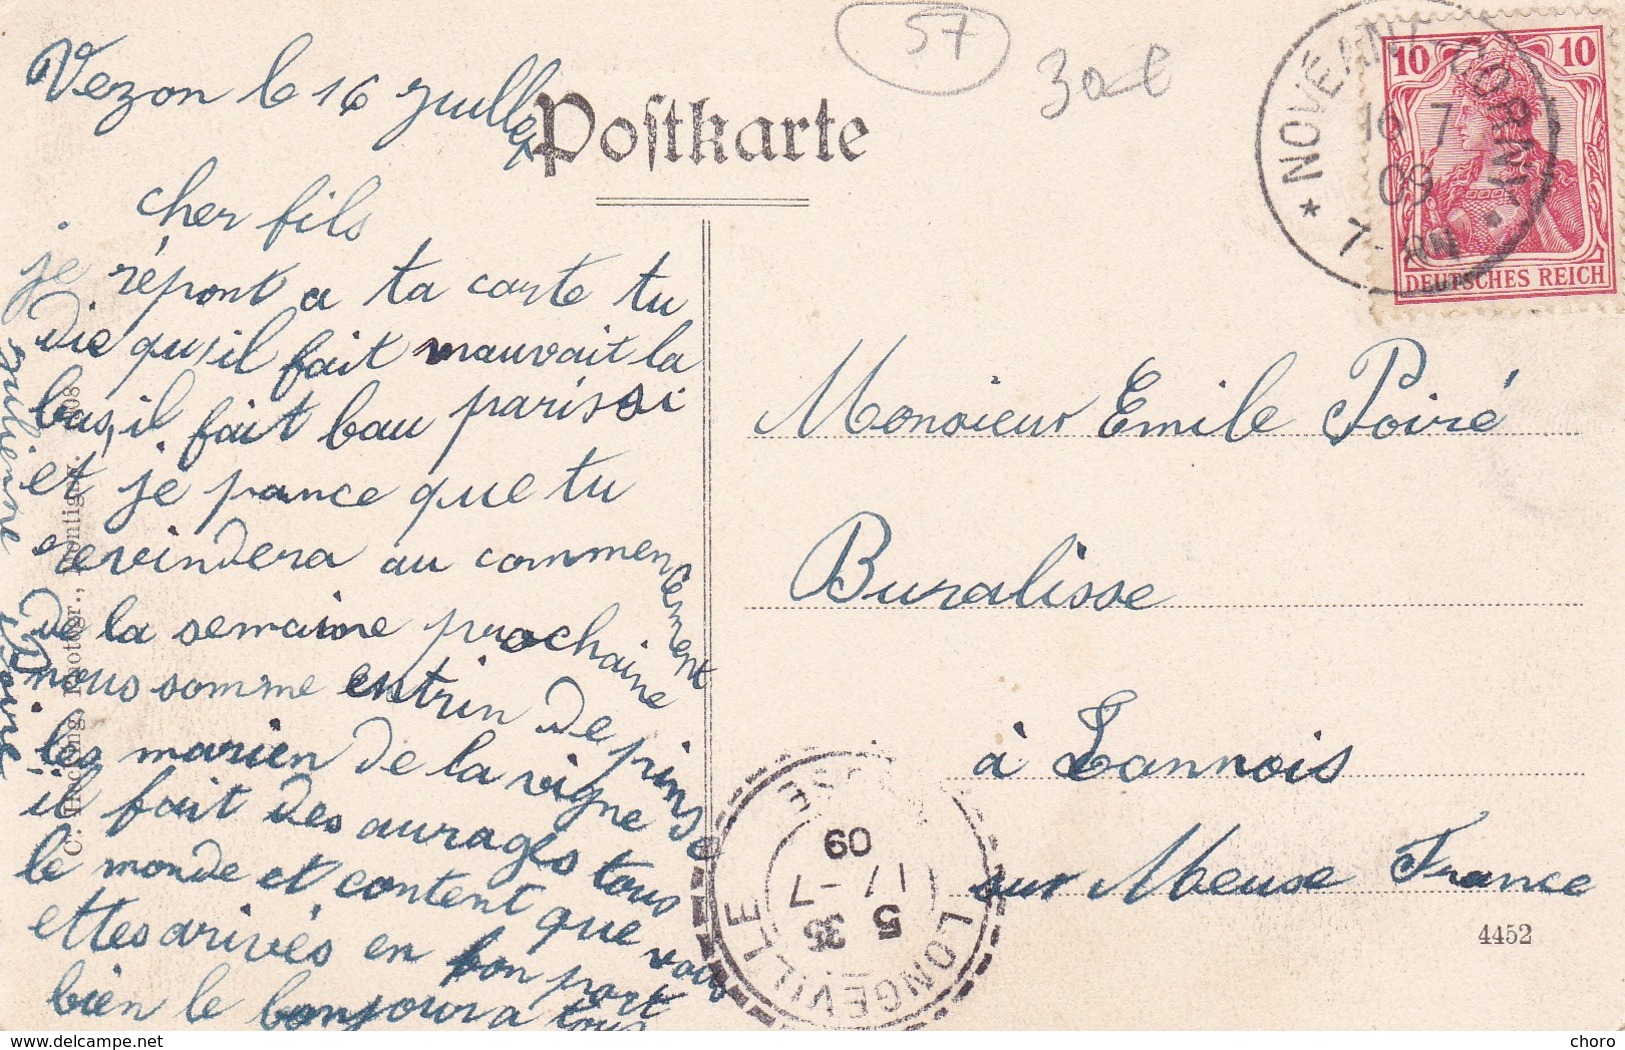 57
30€
Vezon le 16 Juillet
Postkarte
NOVÉANT-CORNY
16 7
09
7-8N
10 10
DEUTSCHES REICH
cher fils
je répont a ta carte tu
die qu'il fait mauvait la
bas, il fait bau par issi
et je pance que tu
revindera au commencement
de la semaine prochaine
nous somme entrin de pinse
les marien de la vigne
il fait des aurages tous
le monde et content que vous
ettes arivés en bon port
bien le bonjour a tous
Julienne Poiré
C. Photogr., Montigny. 1908
Monsieur Emile Poiré
Buralisse
à Lannois
sur Meuse France
4452
LONGEVILLE
5 35
17-7
09
delcampe.net
choro